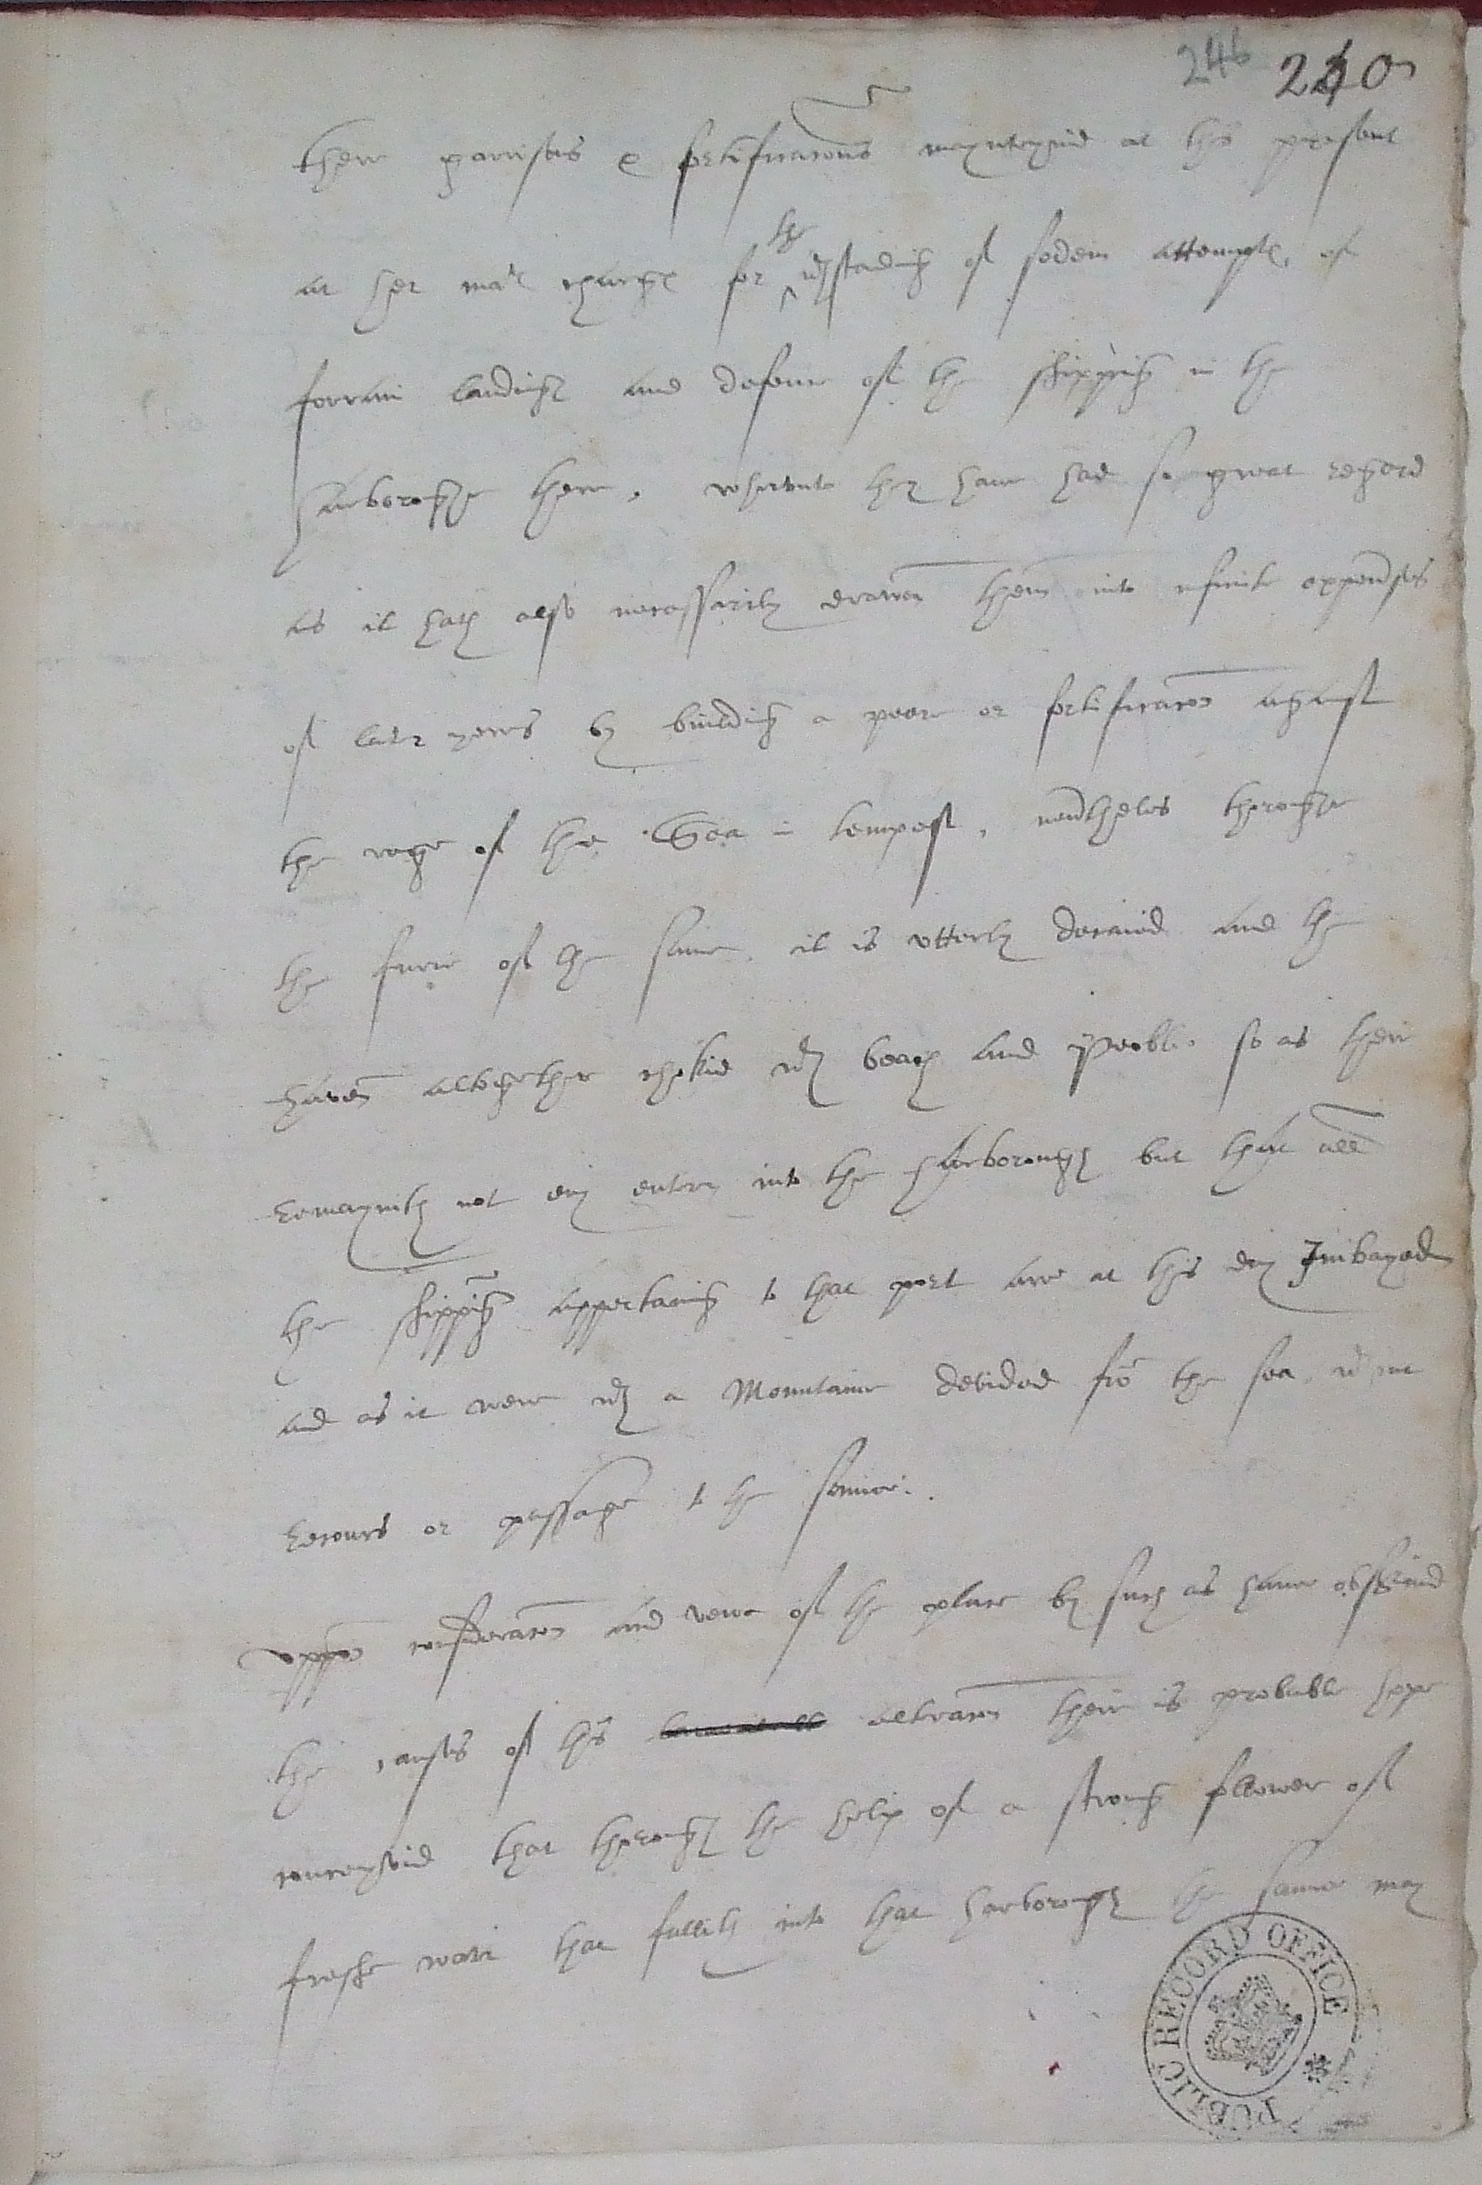 246 210
there garrisons & fortificacons maynteyned at this present
at her mats charge for the wthstanding of soden attempts of
forrain landings and defence of the shipping in the
harboroughe there, whervnto they haue had so great regard
as it hath also necessarily drawen them into infinite expenses
of later yeres by building a peere or fortificacon against
the rage of the Sea in tempest, neuertheles throughe
the furie of the same it is vtterly decaied and the
haven altogether chokid wth beach and Peoble so as their
remaynith not any entery into the harborough but that all
the shipping appertaining to that port are at this day Imbayed
and as it were wth a Mountaine devided from the sea wtout
recours or passage to the same.
vppon consideracon and vewe of the place by such as haue obserued
the causes of this altracon their is probable hope
conceyued that through the help of a strong follower of
freshe water that fallith into that harborough the same may
PUBLIC RECORD OFFICE